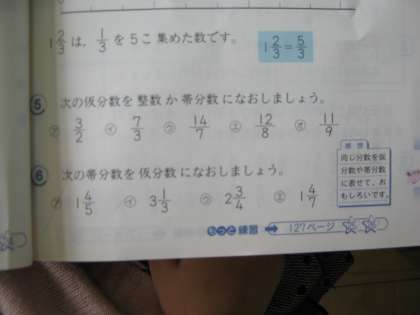 1 2/3 は, 1/3 を 5こ 集めた数です。
1 2/3 = 5/3
5 次の仮分数を 整数 か 帯分数 になおしましょう。
㋐ 3/2 ㋑ 7/3 ㋒ 14/7 ㋓ 12/8 ㋔ 11/9
6 次の帯分数を 仮分数 になおしましょう。
㋐ 1 4/5 ㋑ 3 1/3 ㋒ 2 3/4 ㋓ 1 4/7
同じ分数を仮
分数や帯分数
に表せて、お
もしろいです。
もっと練習 ➡ 127ページ